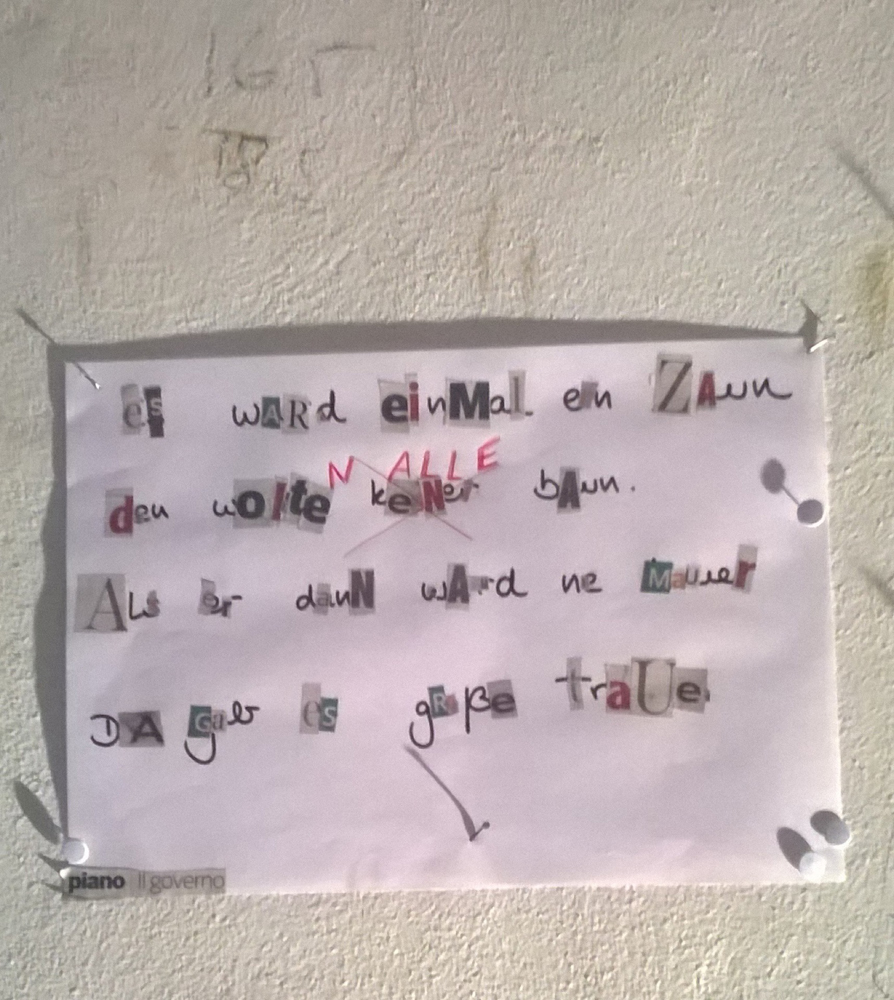 es waRd einMal ein ZAun
N ALLE
den wolte keiNer bAun.
Als er dauN wArd ne Mauer
DA Gab es gRoße traUe.
piano il governo